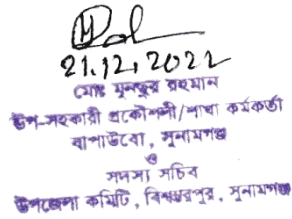 21.12.2022
মোঃ মুনছুর রহমান
উপ-সহকারী প্রকৌশলী/শাখা কর্মকর্তা
বাপাউবো, সুনামগঞ্জ
ও
সদস্য সচিব
উপজেলা কমিটি, বিশ্বম্ভরপুর, সুনামগঞ্জ